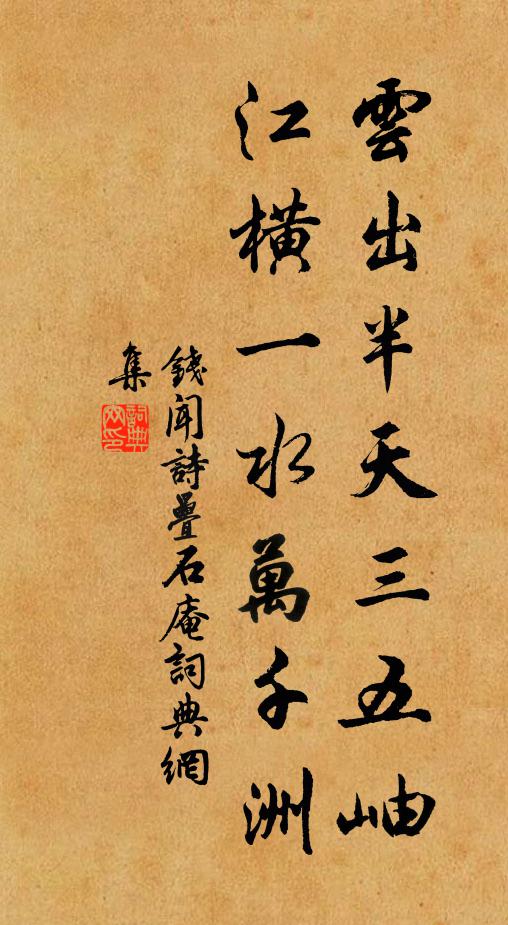 雲出半天三五岫
江橫一水萬千洲
錢聞詩疊石庵詞典網
集
詞典
网印